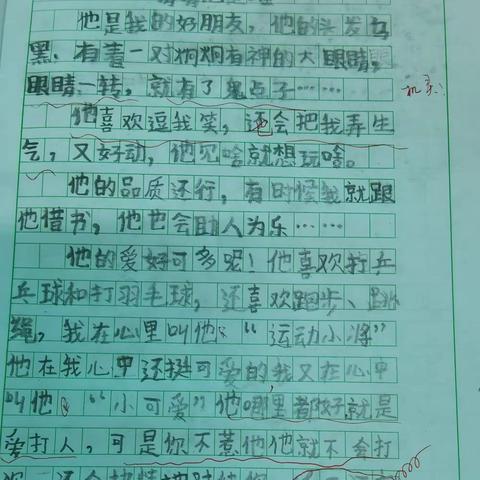 他是我的好朋友，他的头发乌
黑，有着一对炯炯有神的大眼睛，
眼睛一转，就有了鬼点子……
机灵！
他喜欢逗我笑，还会把我弄生
气，又好动，他见啥就想玩啥。
他的品质还行，有时候我就跟
他借书，他也会助人为乐……
他的爱好可多呢！他喜欢打乒
乓球和打羽毛球，还喜欢跑步、跳
绳，我在心里叫他“运动小将”
他在我心中还挺可爱的我又在心中
叫他“小可爱”他哪里都好就是
爱打人，可是你不惹他他就不会打
还会热情地